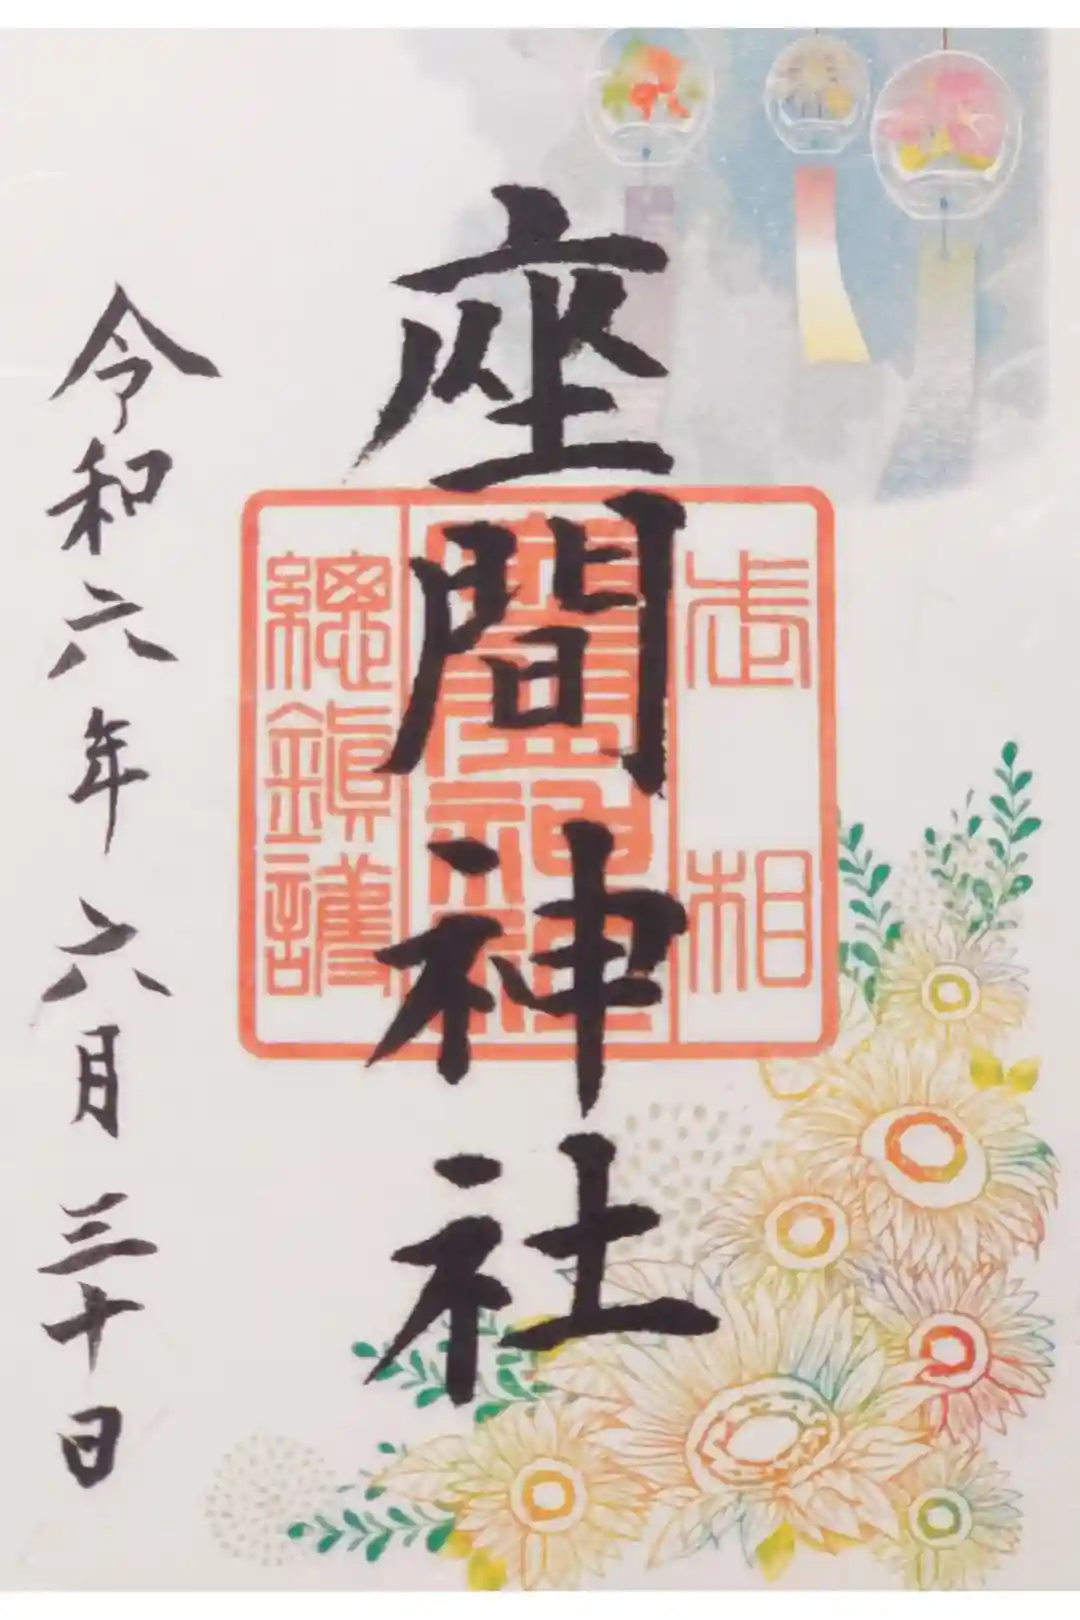 座間神社
相武
座間神社
總鎮護
令和六年六月三十日